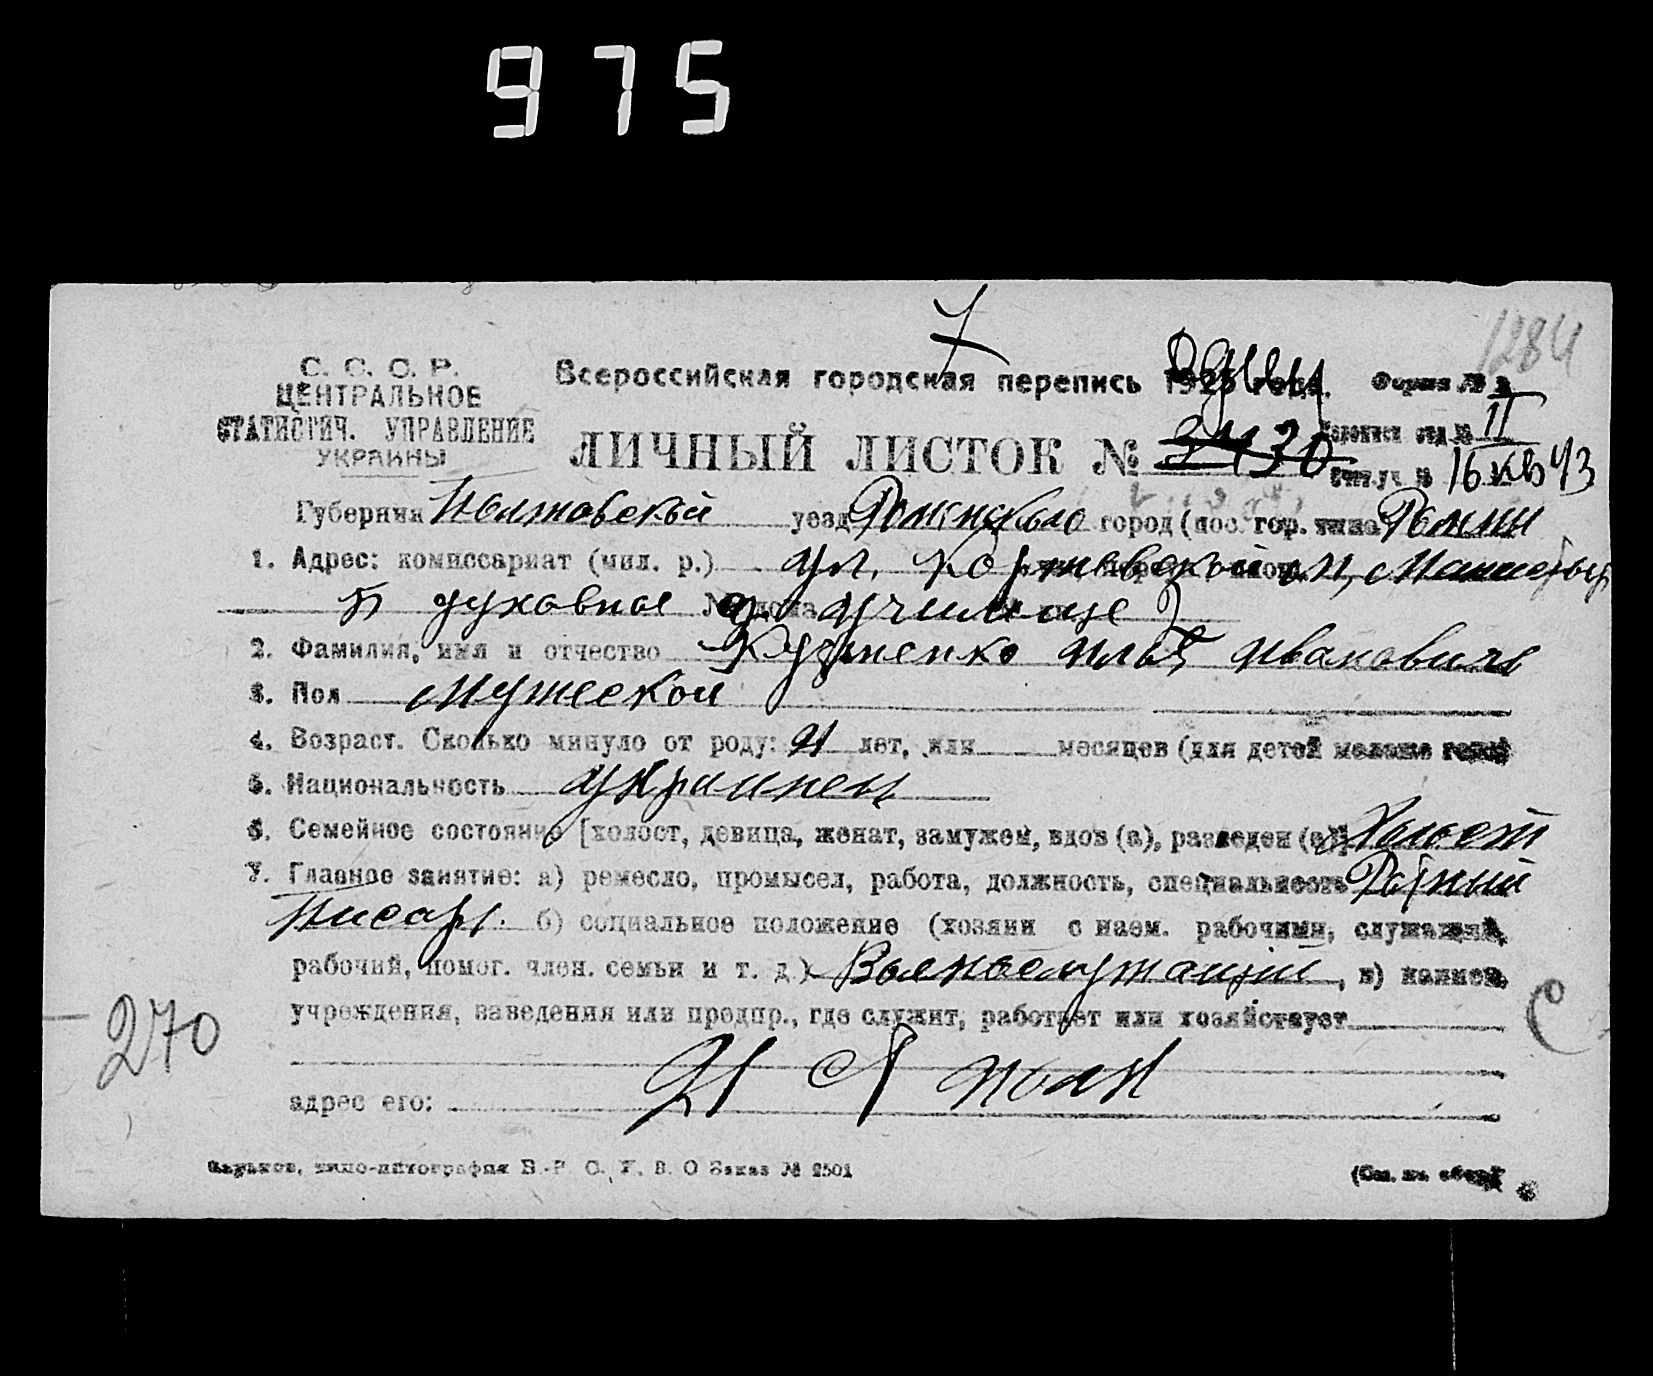 975
1284
7
С. С. С. Р.
ЦЕНТРАЛЬНОЕ
СТАТИСТИЧ. УПРАВЛЕНИЕ
УКРАИНЫ
Всероссийская городская перепись 1923 года.
Форма № 2
ЛИЧНЫЙ ЛИСТОК №
отд № II
№ 16 кв 43
Губерния Полтовской уезд Роменскаго город (пос. гор. типа Ромны
1. Адрес: комиссариат (мил. р.) ул.
духовное училище
2. Фамилия, имя и отчество Илья Иванович
3. Пол Мужеской
4. Возраст. Сколько минуло от роду: 21 лет, или месяцев (для детей моложе года)
5. Национальность украинец
6. Семейное состояние [холост, девица, женат, замужем, вдов (а), разведен (а)] Холост
7. Главное занятие: а) ремесло, промысел, работа, должность, специальность Ротный
писарь. б) социальное положение (хозяин с наем. рабочими, служащий,
рабочий, помог. член. семьи и т. д.) Военнослужащий, в) наимен.
учреждения, заведения или предпр., где служит, работает или хозяйствует
270
С
21 полк
адрес его:
Харьков, типо-литография В. О Заказ № 2501
(См. на обор.)